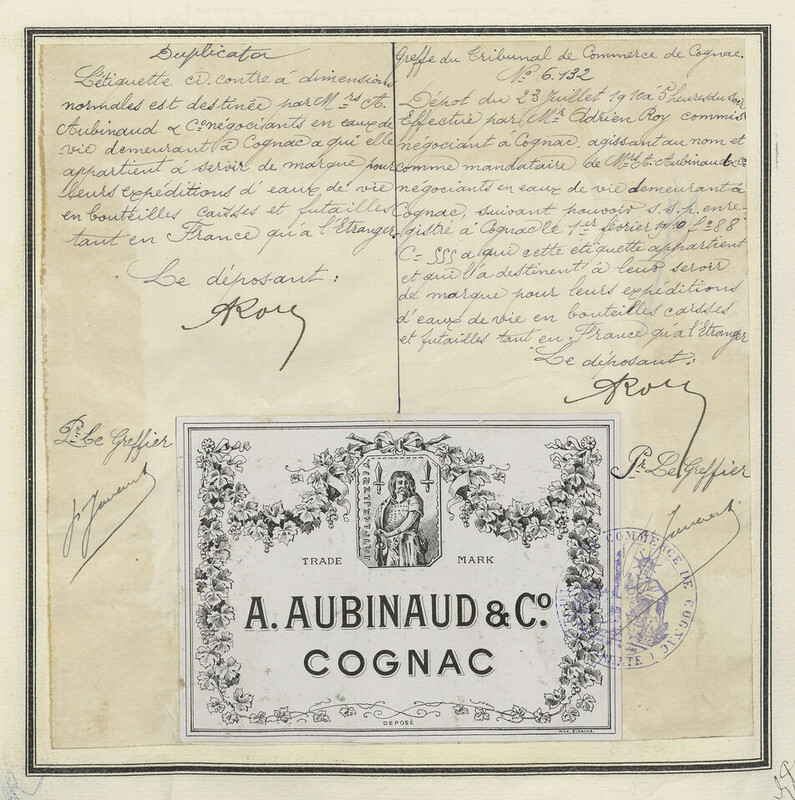 Duplicata
L'étiquette ci-contre à dimensions
normales est destinée par Mrs A.
Aubinaud & Co négociants en eaux de
vie demeurant à Cognac a qui elle
appartient à servir de marque pour
leurs expéditions d'eaux de vie
en bouteilles caisses et futailles
tant en France qu'a l'Etranger.
Le déposant :
ARoy
Pr Le Greffier
Greffe du Tribunal de Commerce de Cognac.
No 6.132
Dépot du 23 Juillet 1910 à 5 heures du soir
Effectué par Mr Adrien Roy commis
négociant à Cognac, agissant au nom et
comme mandataire de Mrs A. Aubinaud & Co
négociants en eaux de vie demeurant à
Cognac, suivant pouvoir s.s.p. enre-
gistré à Cognac le 1er février 1910 fo 88
Ce a qui cette etiquette appartient
et qui l'a destinent à leur servir
de marque pour leurs expéditions
d'eaux de vie en bouteilles caisses
et futailles tant en France qu'a l'Etranger
Le déposant :
ARoy
Pr Le Greffier
TRADE MARK
A. AUBINAUD & Co.
COGNAC
DEPOSÉ
COMMERCE DE COGNAC